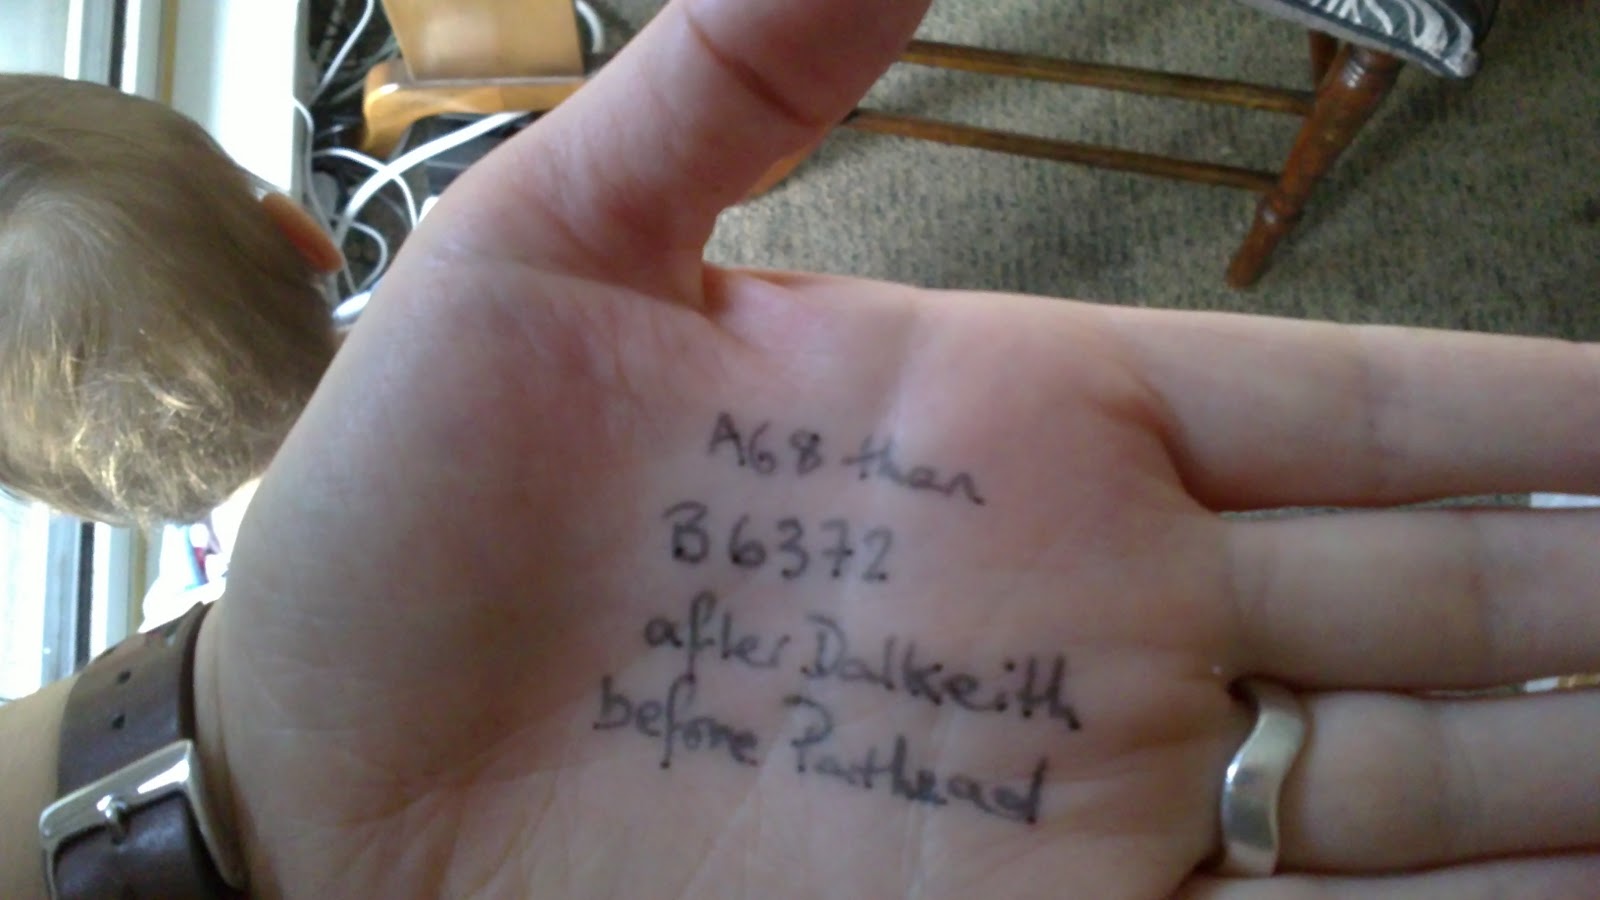 A68 then
B6372
after Dalkeith
before Pathead